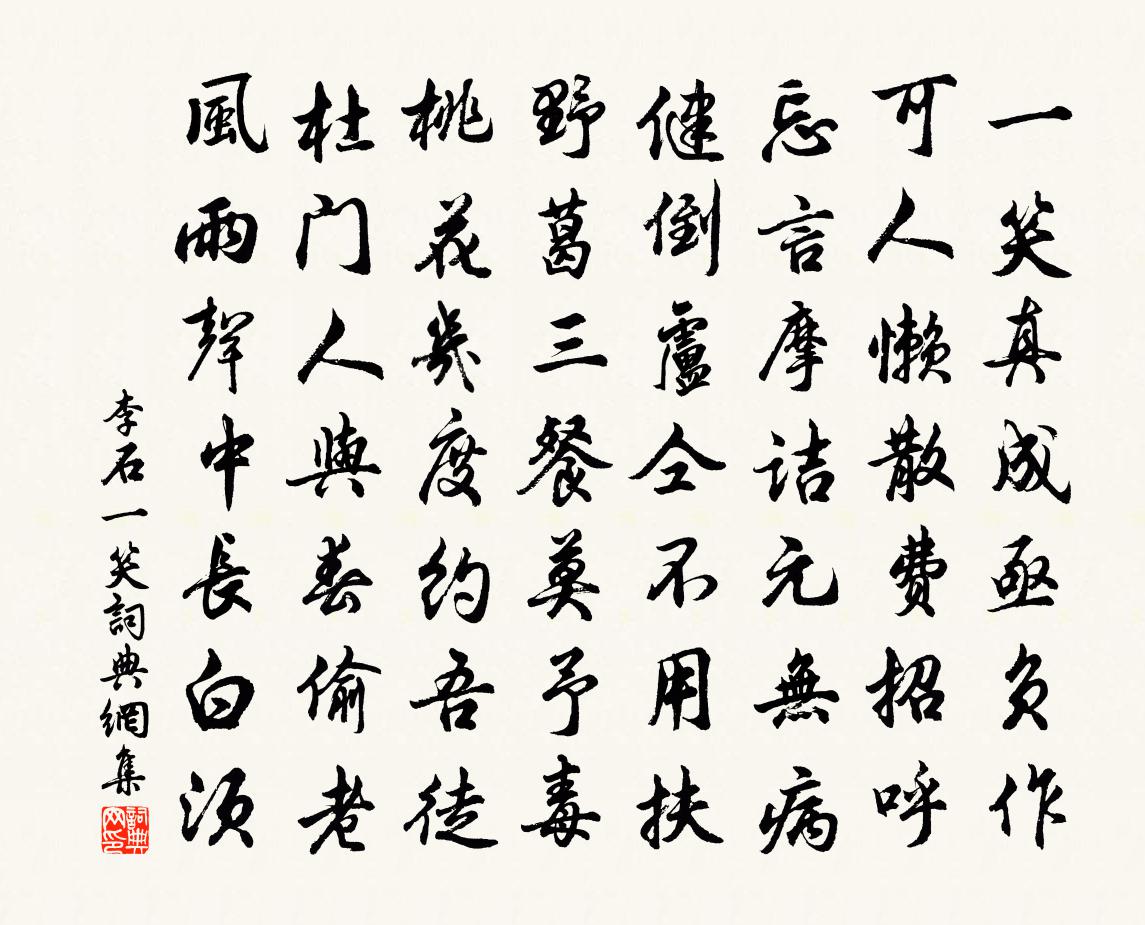 一笑真成亟負作
可人懶散費招呼
忘言摩詰元無病
健倒盧仝不用扶
野葛三餐莫予毒
桃花幾度約吾徒
杜門人與春偷老
風雨聲中長白須
李石一笑詞典網集
詞典网印